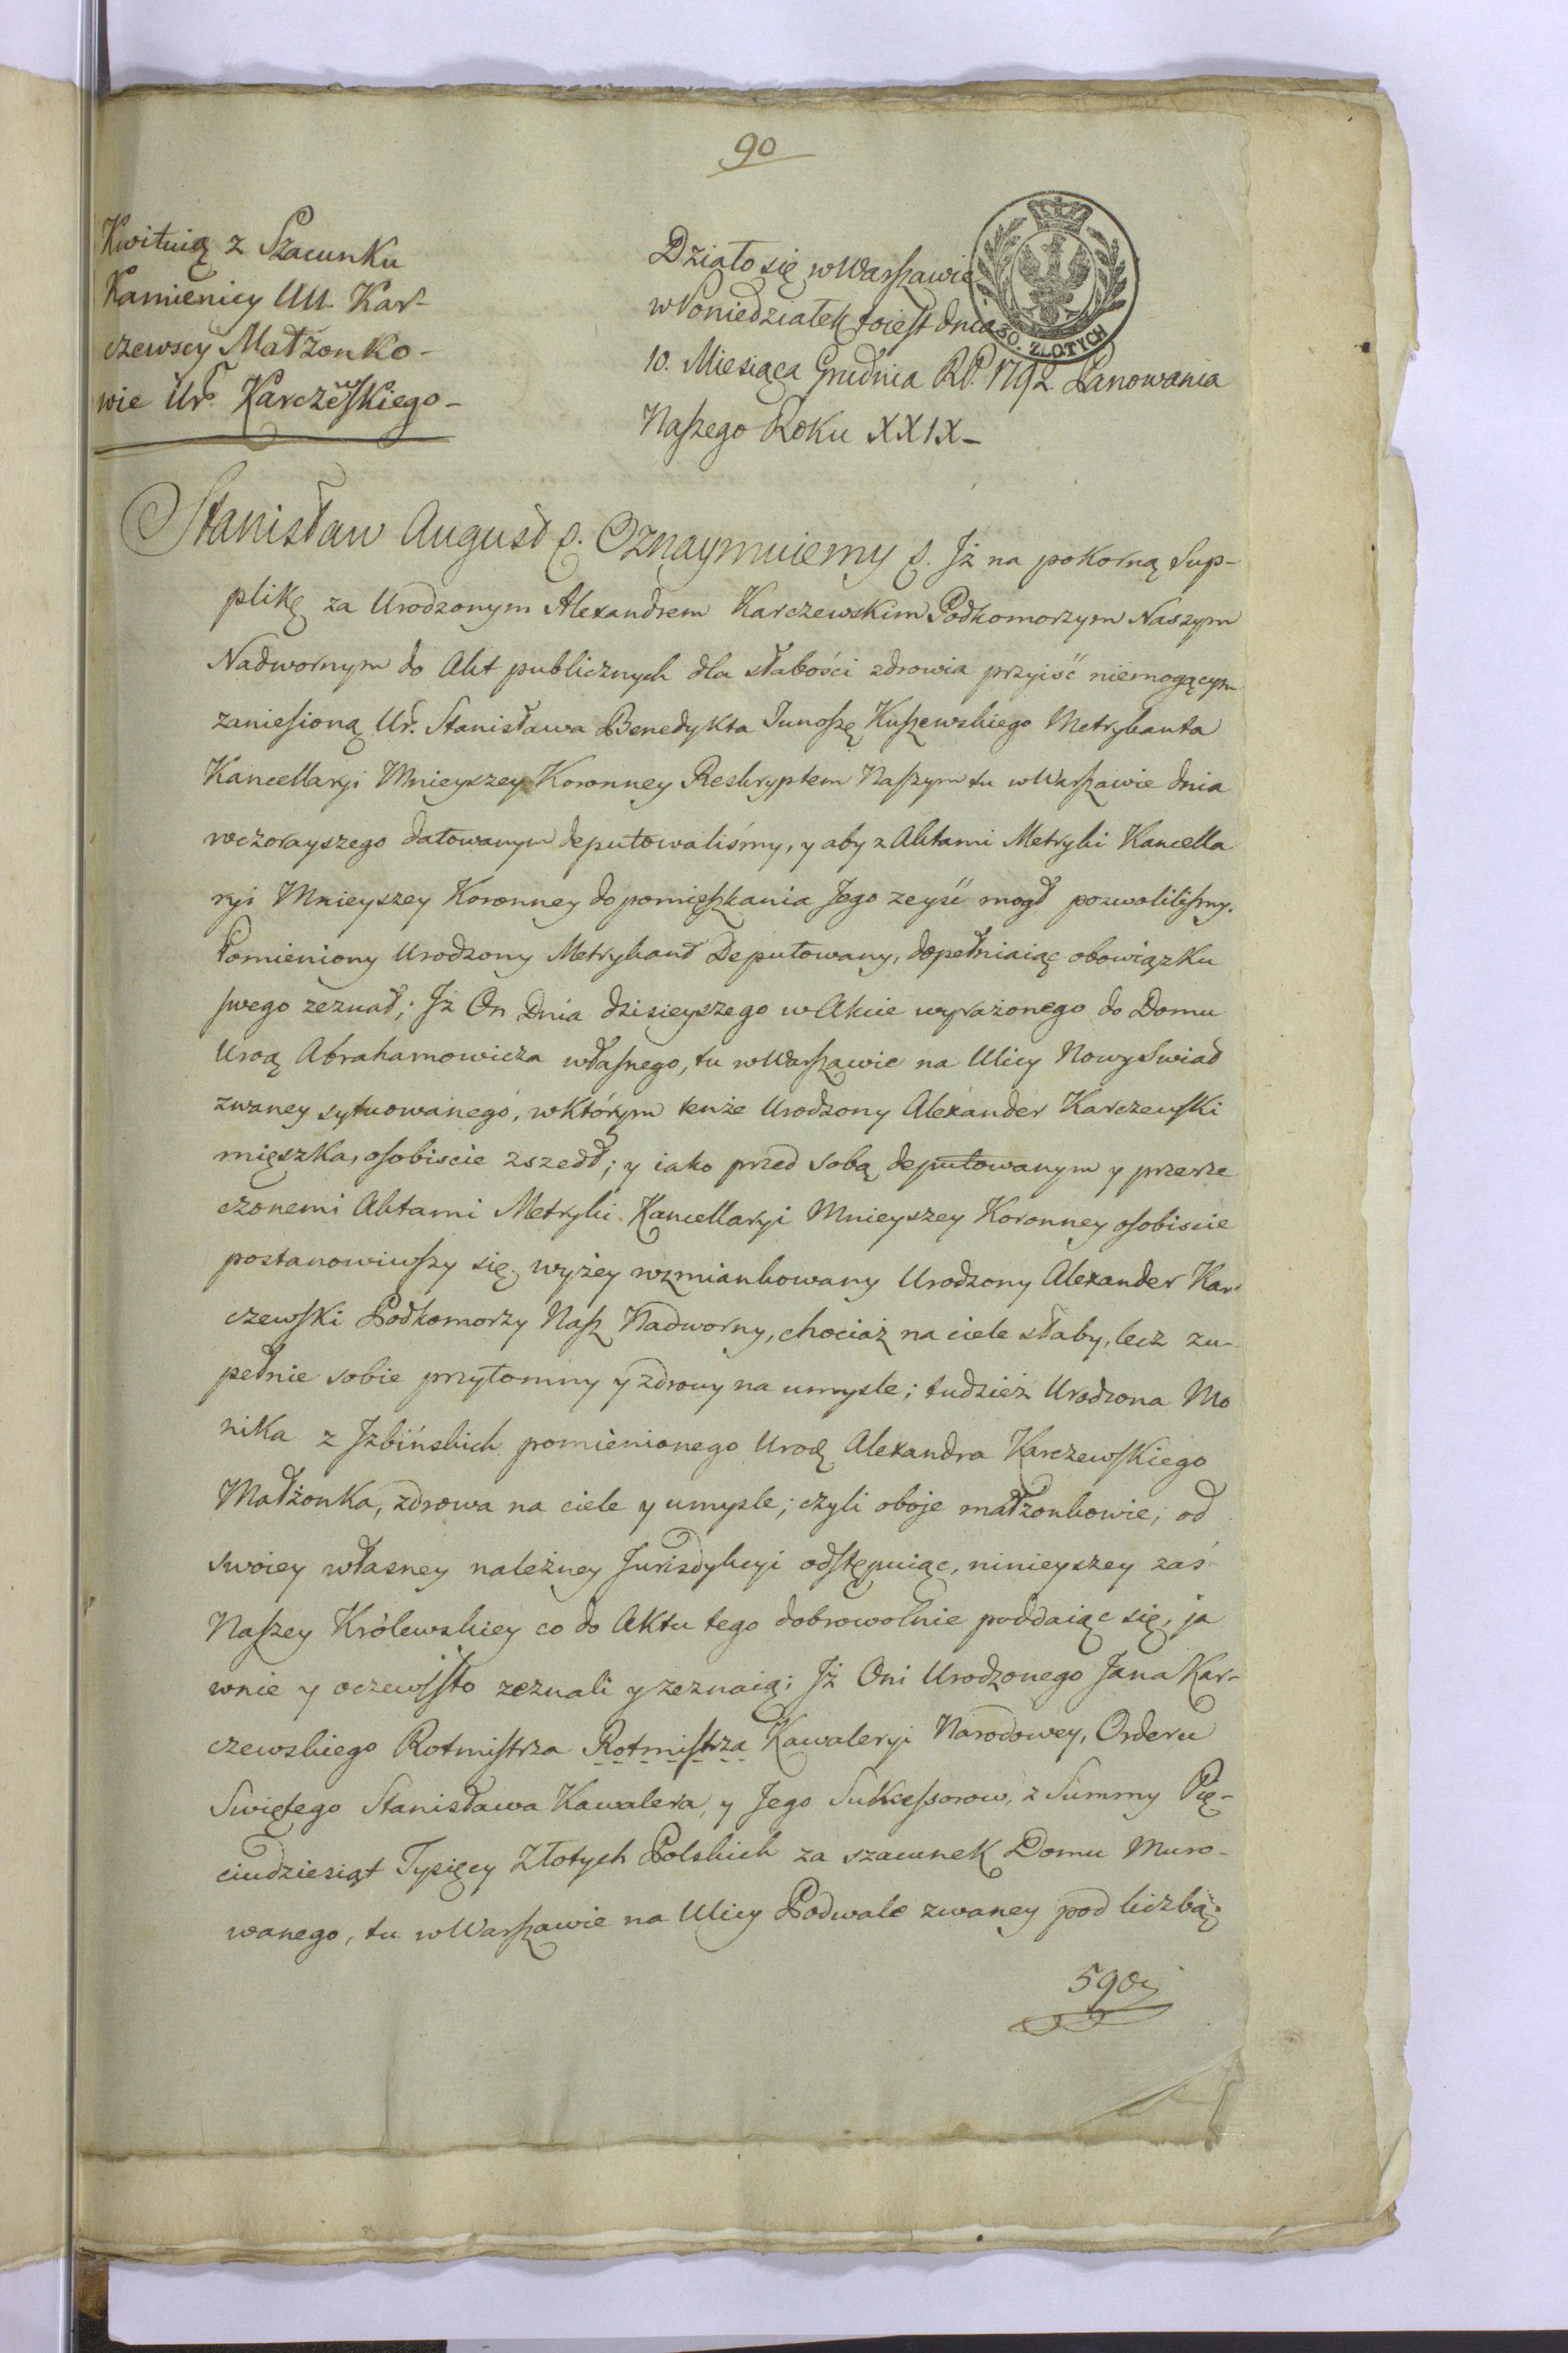 90
Kwituią z Szacunku
Kamienicy UU. Kar-
czewscy Małżonko-
wie Ur. Karczewskiego-
Działo się w Warszawie
w Poniedziałek toiest dnia
30. ZŁOTYCH
10. Miesiąca Grudnia RP. 1792 Panowania
Naszego Roku XXIX-
Stanisław August &. Oznaymuiemy &. Jż na pokorną Sup-
plikę za Urodzonym Alexandrem Karczewskim Podkomorzym Naszym
Nadwornym do Akt publicznych dla słabości zdrowia przyiść niemogącym
zaniesioną Ur. Stanisława Benedykta Junoszę Kuszewskiego Metrykanta
Kancellaryi Mnieyszey Koronney Reskryptem Naszym tu w Warszawie dnia
wczorayszego datowanym deputowaliśmy, y aby z Aktami Metryki Kancella
ryi Mnieyszey Koronney do pomięszkania Jego zeyść mogł pozwolilismy.
Pomieniony Urodzony Metrykant Deputowany, dopełniaiąc obowiązku
swego zeznał; Jż On Dnia dzisieyszego w Akcie wyrażonego do Domu
Urod Abrahamowicza własnego, tu w Warszawie na Ulicy Nowy Swiat
zwaney sytuowanego, w którym tenże Urodzony Alexander Karczewski
mięszka, osobiscie zszedł; y iako przed sobą deputowanym y przerze
czonemi Aktami Metryki Kancellaryi Mnieyszey Koronney osobiscie
postanowiwszy się, wyżey wzmiankowany Urodzony Alexander Kar
czewski Podkomorzy Nasz Nadworny, chociaż na ciele słaby, lecz zu-
pełnie sobie przytomny y zdrowy na umysle; tudzież Urodzona Mo
nika z Jzbińskich pomienionego Urod Alexandra Karczewskiego
Małżonka, zdrowa na ciele y umysle; czyli oboje małżonkowie; od
swoiey własney należney Jurisdykcyi odstępuiąc, ninieyszey zaś
Naszey Królewskiey co do Aktu tego dobrowolnie poddaiąc się, ja
wnie y oczewisto zeznali y zeznaią; Jż Oni Urodzonego Jana Kar-
czewskiego Rotmistrza Rotmistrza Kawaleryi Narodowey, Orderu
Swiętego Stanisława Kawalera, y Jego Sukcessorow, z Summy Pię-
ciudziesiąt Tysięcy Złotych Polskich za szacunek Domu Muro-
wanego, tu w Warszawie na Ulicy Podwale zwaney pod liczbą